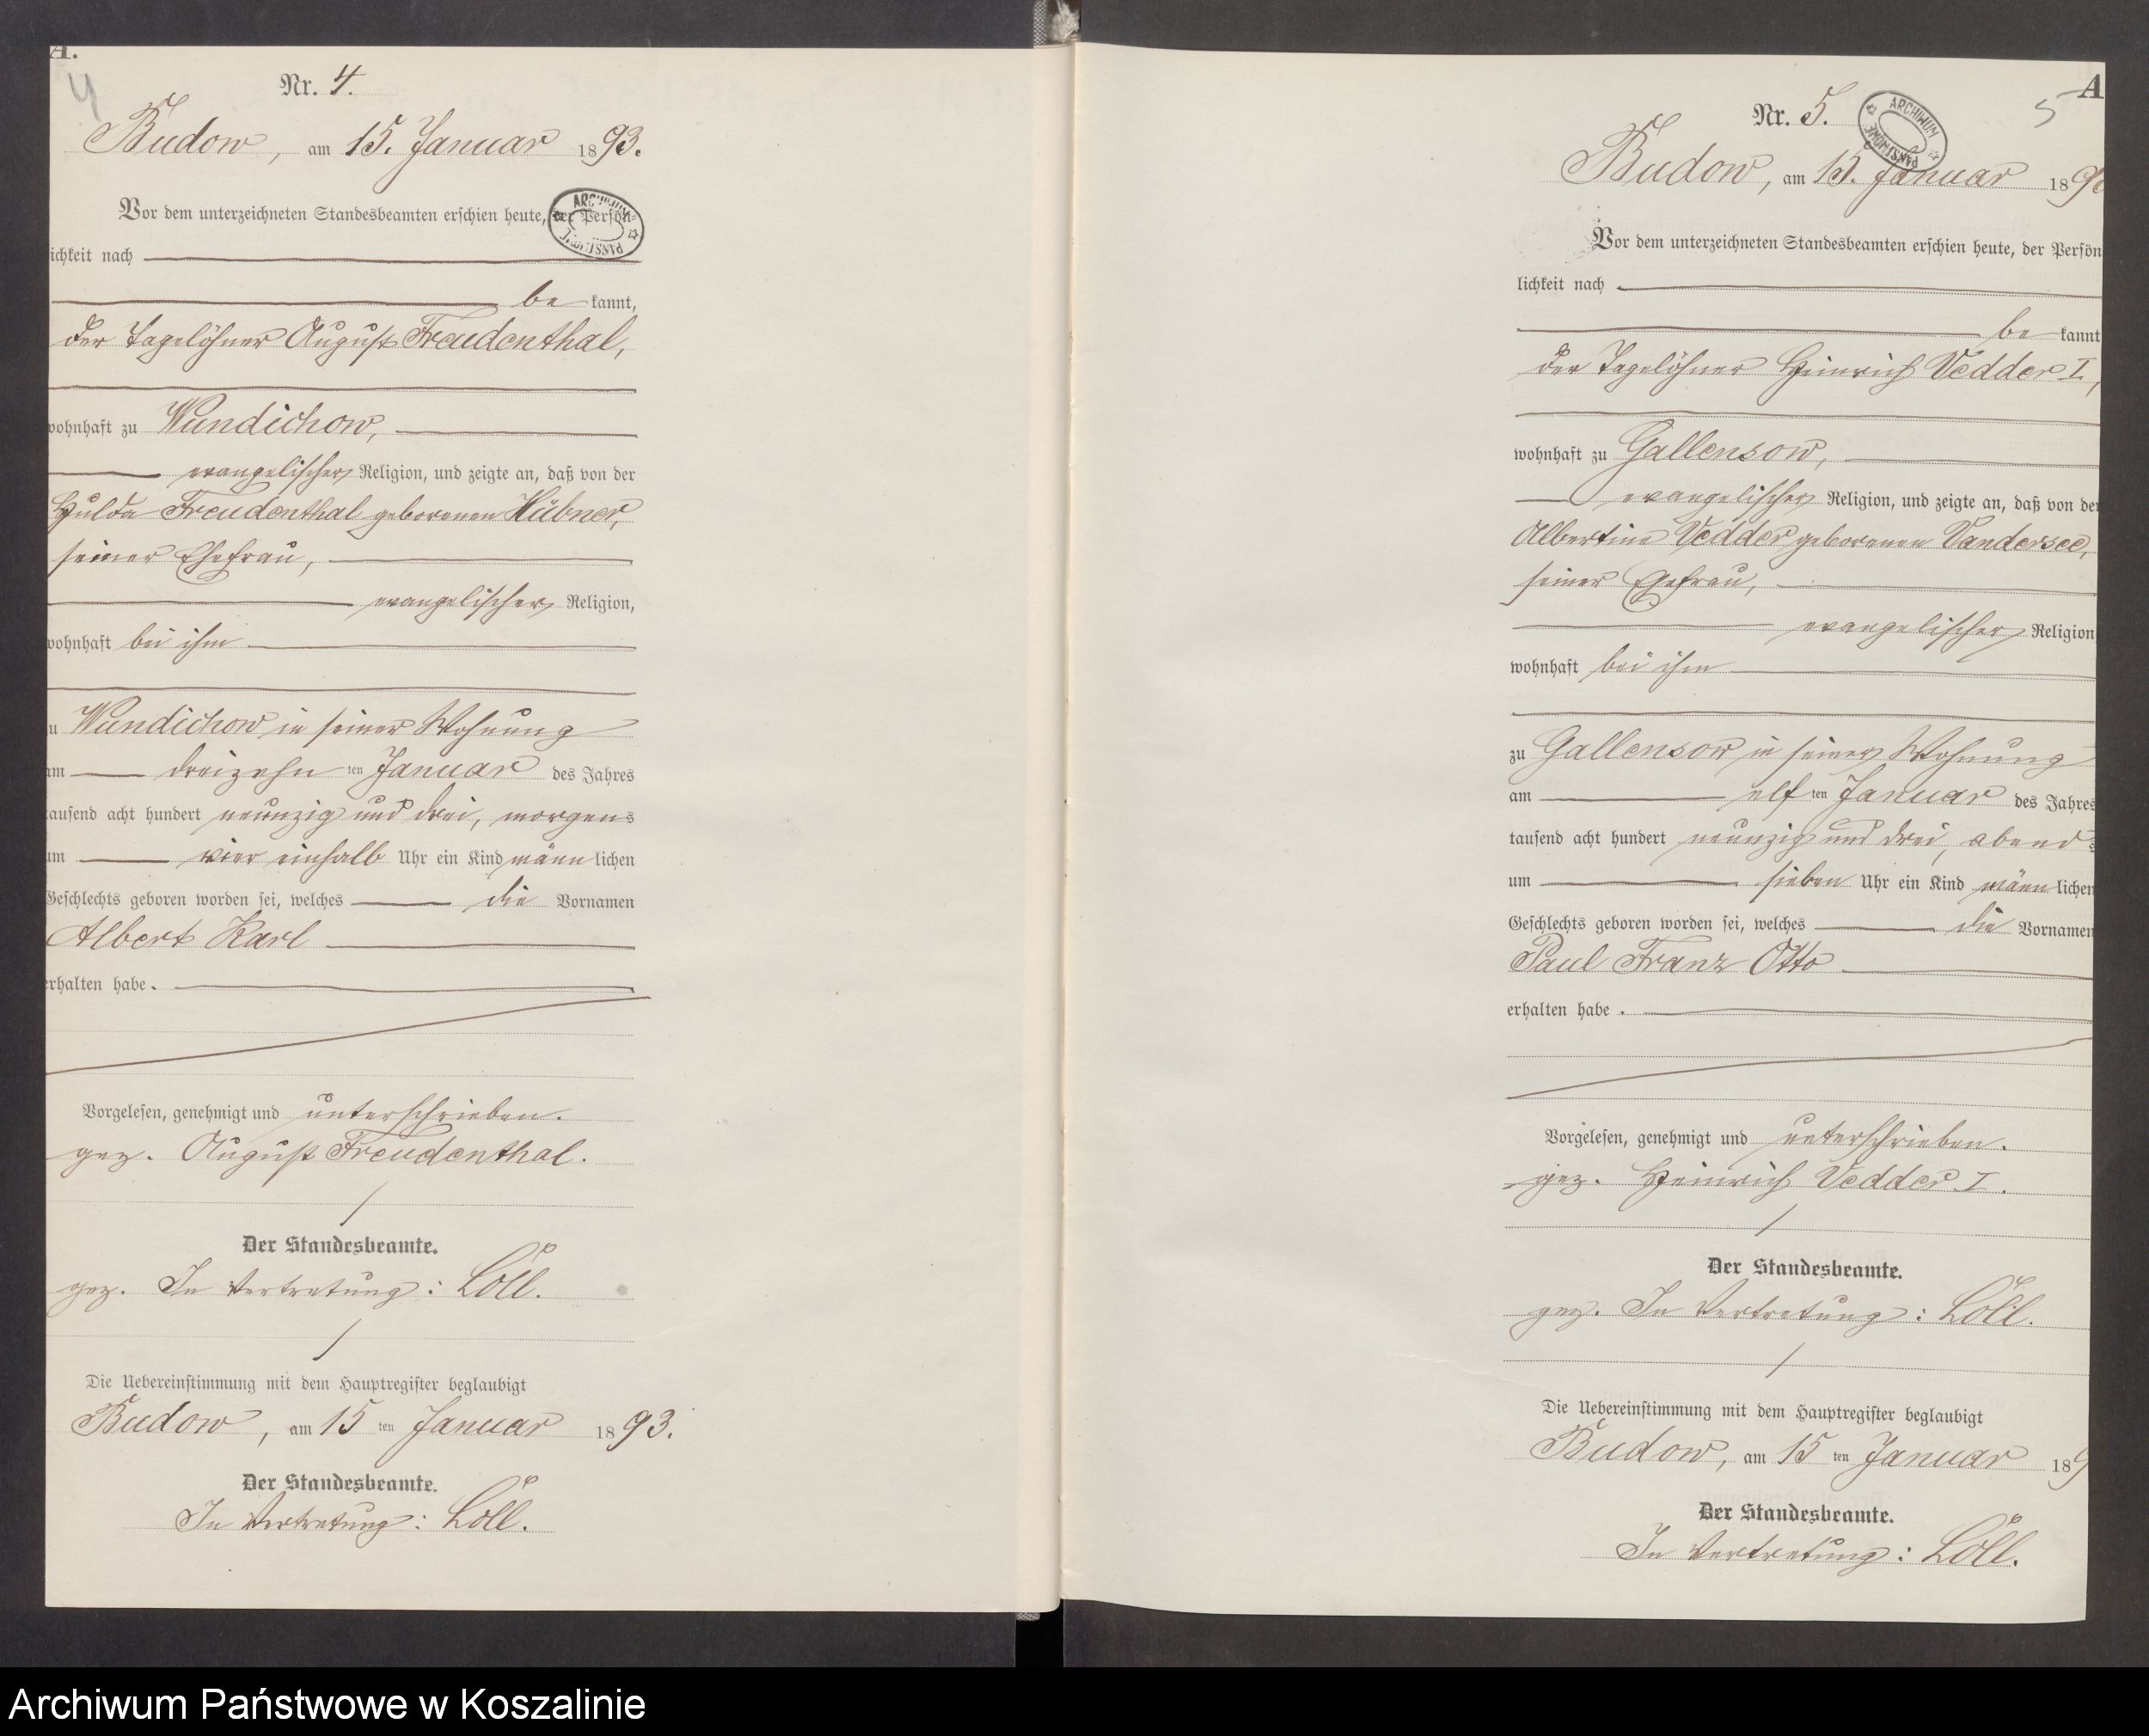 A.
4
Nr. 4.
Budow, am 15. Januar 1893.
Vor dem unterzeichneten Standesbeamten erschien heute, der Persön-
lichkeit nach
be kannt,
der Tagelöhner August Freudenthal,
wohnhaft zu Wundichow,
evangelischer Religion, und zeigte an, daß von der
Hulda Freudenthal geborenen Hübner,
seiner Ehefrau,
evangelischer Religion,
wohnhaft bei ihm
zu Wundichow in seiner Wohnung
am dreizehn ten Januar des Jahres
tausend acht hundert neunzig und drei, morgens
um vier einhalb Uhr ein Kind männ lichen
Geschlechts geboren worden sei, welches die Vornamen
Albert Karl
erhalten habe.
Vorgelesen, genehmigt und unterschrieben.
gez. August Freudenthal.
Der Standesbeamte.
gez. In Vertretung: Löll.
Die Uebereinstimmung mit dem Hauptregister beglaubigt
Budow, am 15 ten Januar 1893.
Der Standesbeamte.
In Vertretung: Löll.
A
5
Nr. 5.
ARCHIWUM PAŃSTWOWE
Budow, am 15. Januar 189
Vor dem unterzeichneten Standesbeamten erschien heute, der Persön
lichkeit nach
be kannt
der Tagelöhner Heinrich Vedder I,
wohnhaft zu Gallensow,
evangelischer Religion, und zeigte an, daß von der
Albertine Vedder geborenen Vandersee,
seiner Ehefrau,
evangelischer Religion
wohnhaft bei ihm
zu Gallensow in seiner Wohnung
am elf ten Januar des Jahres
tausend acht hundert neunzig und drei, abends
um sieben Uhr ein Kind männ lichen
Geschlechts geboren worden sei, welches die Vornamen
Paul Franz Otto
erhalten habe.
Vorgelesen, genehmigt und unterschrieben.
gez. Heinrich Vedder I.
Der Standesbeamte.
gez. In Vertretung: Löll.
Die Uebereinstimmung mit dem Hauptregister beglaubigt
Budow, am 15 ten Januar 189
Der Standesbeamte.
In Vertretung: Löll.
Archiwum Państwowe w Koszalinie